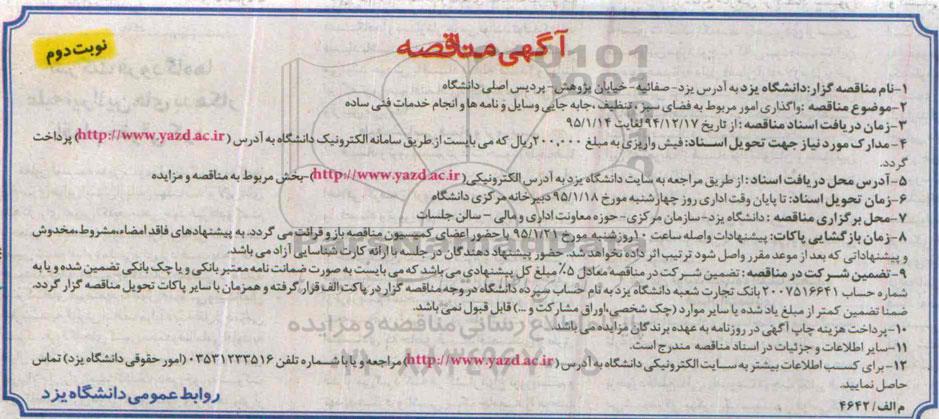 نوبت دوم
آگهی مناقصه
۱-نام مناقصه گزار: دانشگاه یزد به آدرس یزد- صفائیه- خیابان پژوهش- پردیس اصلی دانشگاه
۲-موضوع مناقصه :واگذاری امور مربوط به فضای سبز ، تنظیف ، جابه جایی وسایل و نامه ها و انجام خدمات فنی ساده
۳-زمان دریافت اسناد مناقصه : از تاریخ ۹۴/۱۲/۱۷ لغایت ۹۵/۱/۱۴
۴-مدارک مورد نیاز جهت تحویل اسناد: فیش واریزی به مبلغ ۲۰۰,۰۰۰ ریال که می بایست از طریق سامانه الکترونیک دانشگاه به آدرس (http://www.yazd.ac.ir) پرداخت
گردد.
۵-آدرس محل دریافت اسناد: از طریق مراجعه به سایت دانشگاه یزد به آدرس الکترونیکی(http://www.yazd.ac.ir)-بخش مربوط به مناقصه و مزایده
۶-زمان تحویل اسناد: تا پایان وقت اداری روز چهارشنبه مورخ ۹۵/۱/۱۸ دبیرخانه مرکزی دانشگاه
۷-محل برگزاری مناقصه : دانشگاه یزد- سازمان مرکزی- حوزه معاونت اداری و مالی - سالن جلسات
۸-زمان بازگشایی پاکات: پیشنهادات واصله ساعت ۱۰ روزشنبه مورخ ۹۵/۱/۲۱ با حضور اعضای کمیسیون مناقصه باز و قرائت می گردد. به پیشنهادهای فاقد امضاء،مشروط،مخدوش
و پیشنهاداتی که بعد از موعد مقرر واصل شود ترتیب اثر داده نخواهد شد. حضور پیشنهاد دهندگان در جلسه با ارائه کارت شناسایی آزاد می باشد.
۹-تضمین شرکت در مناقصه: تضمین شرکت در مناقصه معادل ۵٪ مبلغ کل پیشنهادی می باشد که می بایست به صورت ضمانت نامه معتبر بانکی و یا چک بانکی تضمین شده و یا به
شماره حساب ۲۰۰۷۵۱۶۶۴۱ بانک تجارت شعبه دانشگاه یزد به نام حساب سپرده دانشگاه در وجه مناقصه گزار در پاکت الف قرار گرفته و همزمان با سایر پاکات تحویل مناقصه گزار گردد.
ضمنا تضمین کمتر از مبلغ یاد شده یا سایر موارد (چک شخصی،اوراق مشارکت و ...) قابل قبول نمی باشد.
۱۰-پرداخت هزینه چاپ آگهی در روزنامه به عهده برندگان مزایده می باشد.
۱۱-سایر اطلاعات و جزئیات در اسناد مناقصه مندرج است.
۱۲-برای کسب اطلاعات بیشتر به سایت الکترونیکی دانشگاه به آدرس (http://www.yazd.ac.ir) مراجعه و یا با شماره تلفن ۰۳۵۳۱۲۳۳۵۱۶ (امور حقوقی دانشگاه یزد) تماس
حاصل نمایید.
م الف/ ۴۶۴۲
روابط عمومی دانشگاه یزد